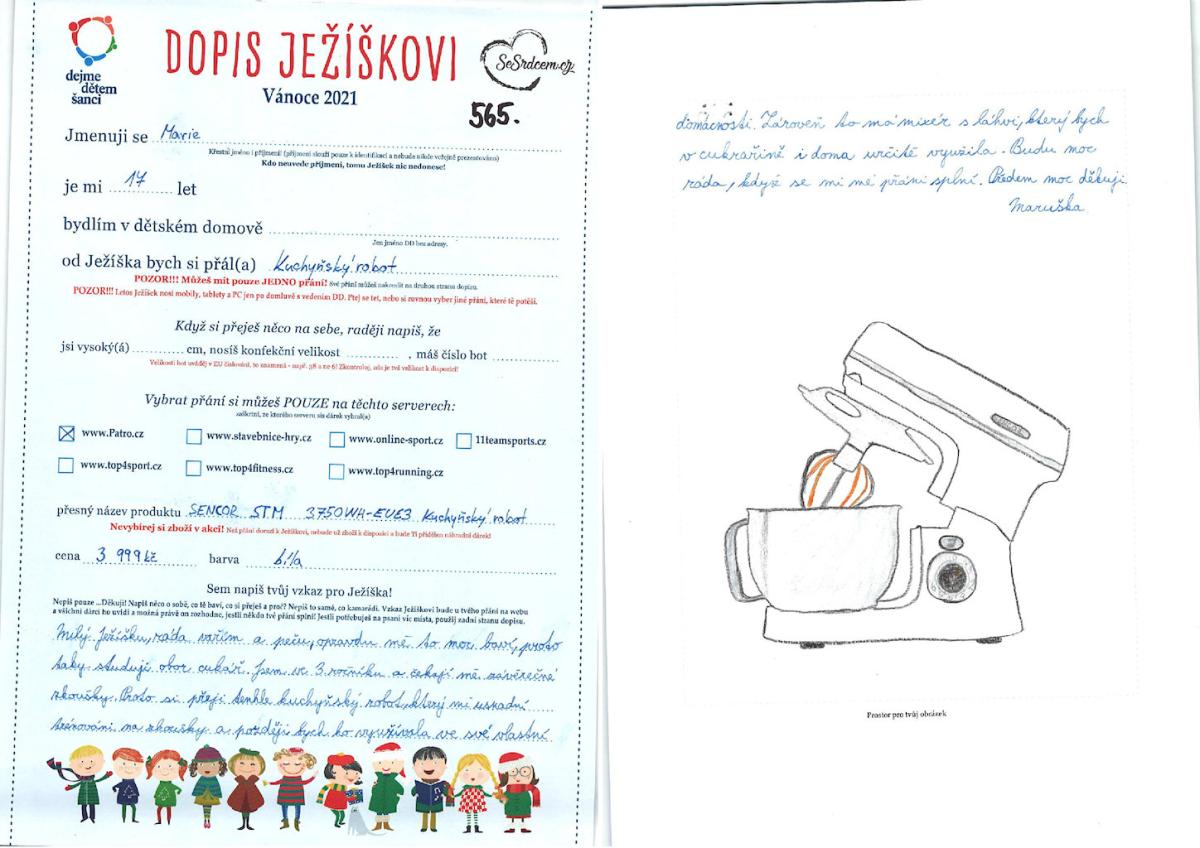 dejme
dětem
šanci
DOPIS JEŽÍŠKOVI
Vánoce 2021
SeSrdcem.cz
565.
Jmenuji se Marie
Křestní jméno i příjmení! (příjmení slouží pouze k identifikaci a nebude nikde veřejně prezentováno)
Kdo neuvede příjmení, tomu Ježíšek nic nedonese!
je mi 17 let
bydlím v dětském domově
Jen jméno DD bez adresy.
od Ježíška bych si přál(a) Kuchyňský robot
POZOR!!! Můžeš mít pouze JEDNO přání! Své přání můžeš nakreslit na druhou stranu dopisu.
POZOR!!! Letos Ježíšek nosí mobily, tablety a PC jen po domluvě s vedením DD. Ptej se tet, nebo si rovnou vyber jiné přání, které tě potěší.
Když si přeješ něco na sebe, raději napiš, že
jsi vysoký(á) cm, nosíš konfekční velikost , máš číslo bot
Velikosti bot uváděj v EU číslování, to znamená - např. 38 a ne 6! Zkontroluj, zda je tvá velikost k dispozici!
Vybrat přání si můžeš POUZE na těchto serverech:
zaškrtni, ze kterého serveru sis dárek vybral(a)
www.Patro.cz www.stavebnice-hry.cz www.online-sport.cz 11teamsports.cz
www.top4sport.cz www.top4fitness.cz www.top4running.cz
přesný název produktu SENCOR STM 3750WH-EUE3 Kuchyňský robot
Nevybírej si zboží v akci! Než přání dorazí k Ježíškovi, nebude už zboží k dispozici a bude Ti přidělen náhradní dárek!
cena 3 999 kč barva bíla
Sem napiš tvůj vzkaz pro Ježíška!
Nepiš pouze ...Děkuji! Napiš něco o sobě, co tě baví, co si přeješ a proč? Nepiš to samé, co kamarádi. Vzkaz Ježíškovi bude u tvého přání na webu
a všichni dárci ho uvidí a možná právě on rozhodne, jestli někdo tvé přání splní! Jestli potřebuješ na psaní víc místa, použij zadní stranu dopisu.
Milý Ježíšku, ráda vařím a peču, opravdu mě to moc baví, proto
taky studuji obor cukář. Jsem ve 3. ročníku a čekají mě závěrečné
zkoušky. Proto si přeji tenhle kuchyňský robot, který mi usnadní
trénování na zkoušky a později bych ho využívala ve své vlastní
domácnosti. Zároveň to má mixér s láhví, který bych
v cukrařině i doma určitě využila. Budu moc
ráda, když se mi mé přání splní. Předem moc děkuji.
Maruška
Prostor pro tvůj obrázek